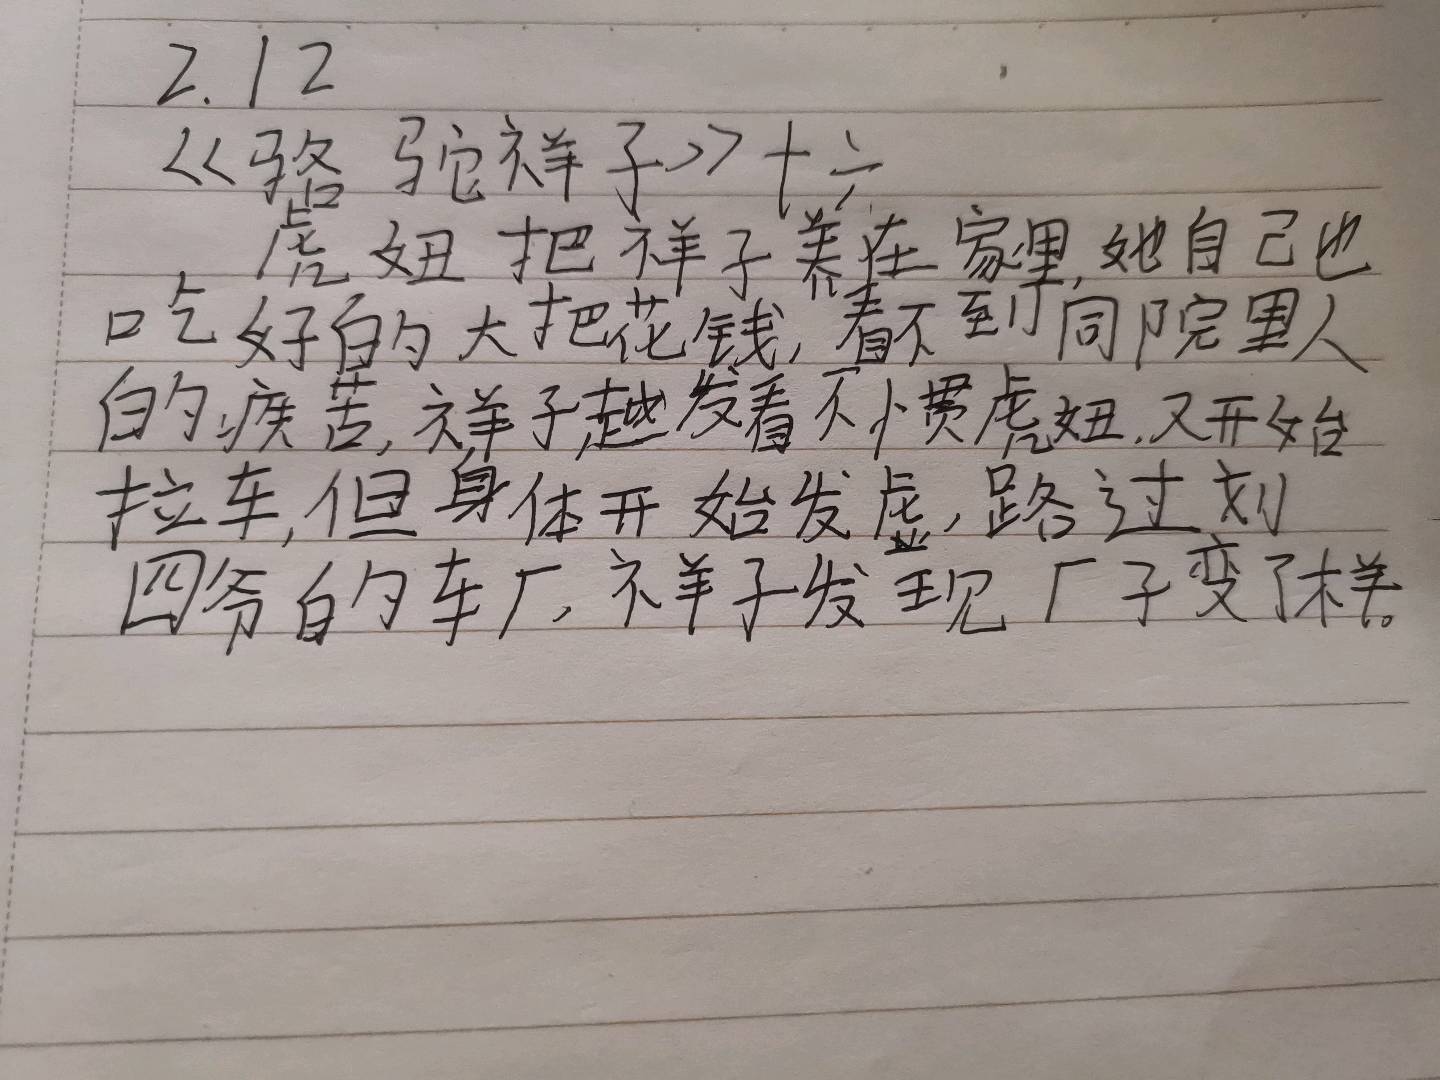 2.12
《骆驼祥子》十六
虎妞把祥子养在家里,她自己也
吃好的大把花钱,看不到同院里人
的疾苦,祥子越发看不惯虎妞.又开始
拉车,但身体开始发虚,路过刘
四爷的车厂,祥子发现厂子变了样。